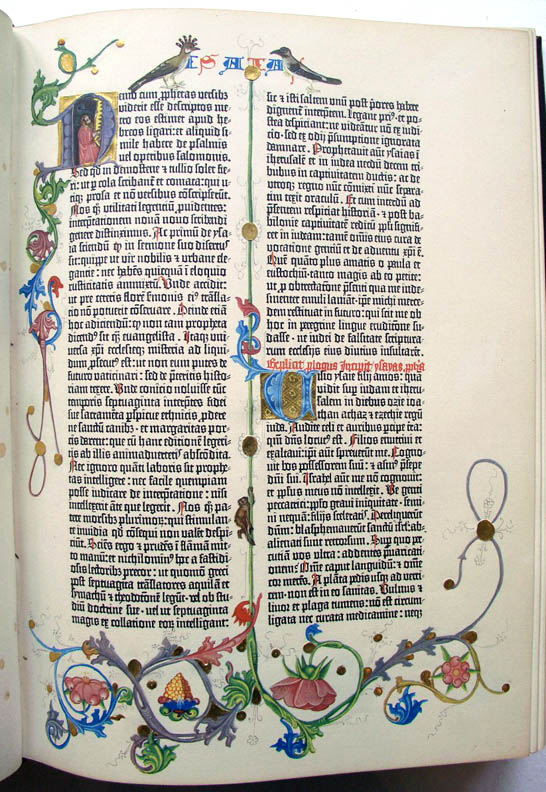 ESATA
Nemo cum prophetas versibꝫ
viderit esse descriptos me-
tro eos estimet apud he-
breos ligari: et aliquid si-
mile habere de psalmis
vel operibus salomonis.
Sed qd in demostene et tullio solet fie-
ri: ut p cola scribant et comata: qui u-
tiqꝫ prosa et nō versibus cōscripserūt.
Nos qꝫ utilitati legentiū puidentes:
interptationem novam novo scribendi
genere distinximus. Ac primū de ysa-
ia sciendū qꝫ in sermone suo disertus
sit: quippe ut vir nobilis & urbane ele-
gantie: nec habēs quicquā ī eloquio
rusticitatis ammixtū. Vnde accidit:
ut pre ceteris florē sermonis eiꝰ trāsla-
tio nō potuerit cōservare. Deinde etiā
hoc adiciendū: qꝫ non tam propheta
dicendꝰ sit qꝫ evangelista. Itaqꝫ uni-
versa xp̄i ecclesieqꝫ misteria ad liqui-
dum psecutꝰ est: ut non eum putes de
futuro vaticinari: sed de preteritis histo-
riam texere. Vnde conicio noluisse tūc
temporis septuaginta interpretes fidei
sue sacramēta pspicue ethnicis pdere:
ne sanctū canibꝫ et margaritas por-
cis darent: que cū hanc editionē legeri-
tis ab illis animadvertetis abscōdita.
Nec ignoro quanti laboris sit prophe-
tas intelligere: nec facile quempiam
posse iudicare de interptatione: nisi
intellexerit ante que legerit. Nos qꝫ pa-
tere morsibꝫ plurimorꝫ: qui stimulante
invidia qd cōsequi non valēt despi-
ciūt. Sciens ergo et prudēs ī flammā mit-
to manū: et nichilominꝰ hoc a fastidi-
osis lectoribꝫ precor: ut quomō greci
post septuaginta trāslatores aquilā et
symachū & theodotionē legūt: vel ob stu-
diū doctrine sue: vel ut septuaginta
magis ex collatione eorꝫ intelligant:
sic & isti saltem unū post priores habere
dignentur interptem. Legant priꝰ: et po-
stea despiciant: ne videātur nō ex iudi-
cio: sed ex odij psumptione ignorata
damnare. Prophetavit aūt ysaias ī
iherusalē et in iudea necdū decem tri-
bubus in captivitatem ductis: ac de
utroqꝫ regno nūc cōmixti nūc separa-
tim texit oraculū. Et cum interdū ad
psentem respiciat historiā: & post ba-
bilonie captivitatē reditū ppli signifi-
cet in iudeam: tamē omīs eius cura de
vocatione gentiū et de adventu xp̄i ē.
Quē quāto plus amatis o paula et
eustochiū: tanto magis ab eo petite:
ut p obtrectatione psenti qua me inde-
sinenter emuli laniāt: ipe michi merce-
dem restituat in futuro: qui scit me ob
hoc in peregrine lingue eruditione su-
dasse: ne iudei de falsitate scriptu-
rarum ecclesijs eius diutius insultarēt.
Explicit plogus Incipit ysayas ppha
Visio ysaie filij amos: quā
vidit sup iudam et iheru-
salem in diebus ozie ioa-
than achaz & ezechie regū
iuda. Audite celi et auribus pcipe terra:
qm dns locutꝰ est. Filios enutrivi et
exaltavi: ipi aut spreverūt me. Cogno-
vit bos possessorem suū: & asinꝰ psepe
dni sui. Israhel aūt me nō cognovit:
et pplus meus nō intellexit. Ve genti
peccatrici: pplo gravi iniquitate: semi-
ni nequā: filijs sceleratꝭ. Dereliquerūt
dnm: blasphemaverūt sanctū isrl: ab-
alienati sunt retrorsum. Sup quo p-
cutiā vos ultra: addentes pvaricati-
onem? Omne caput languidū: & omne
cor merēs. A plāta pedis usqꝫ ad verti-
cem: non est in eo sanitas. Vulnus &
livor et plaga tumens: nō est circum-
ligata nec curata medicamine: necqꝫ